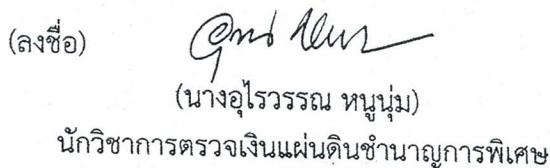 (ลงชื่อ)
(นางอุไรวรรณ หนูนุ่ม)
นักวิชาการตรวจเงินแผ่นดินชำนาญการพิเศษ